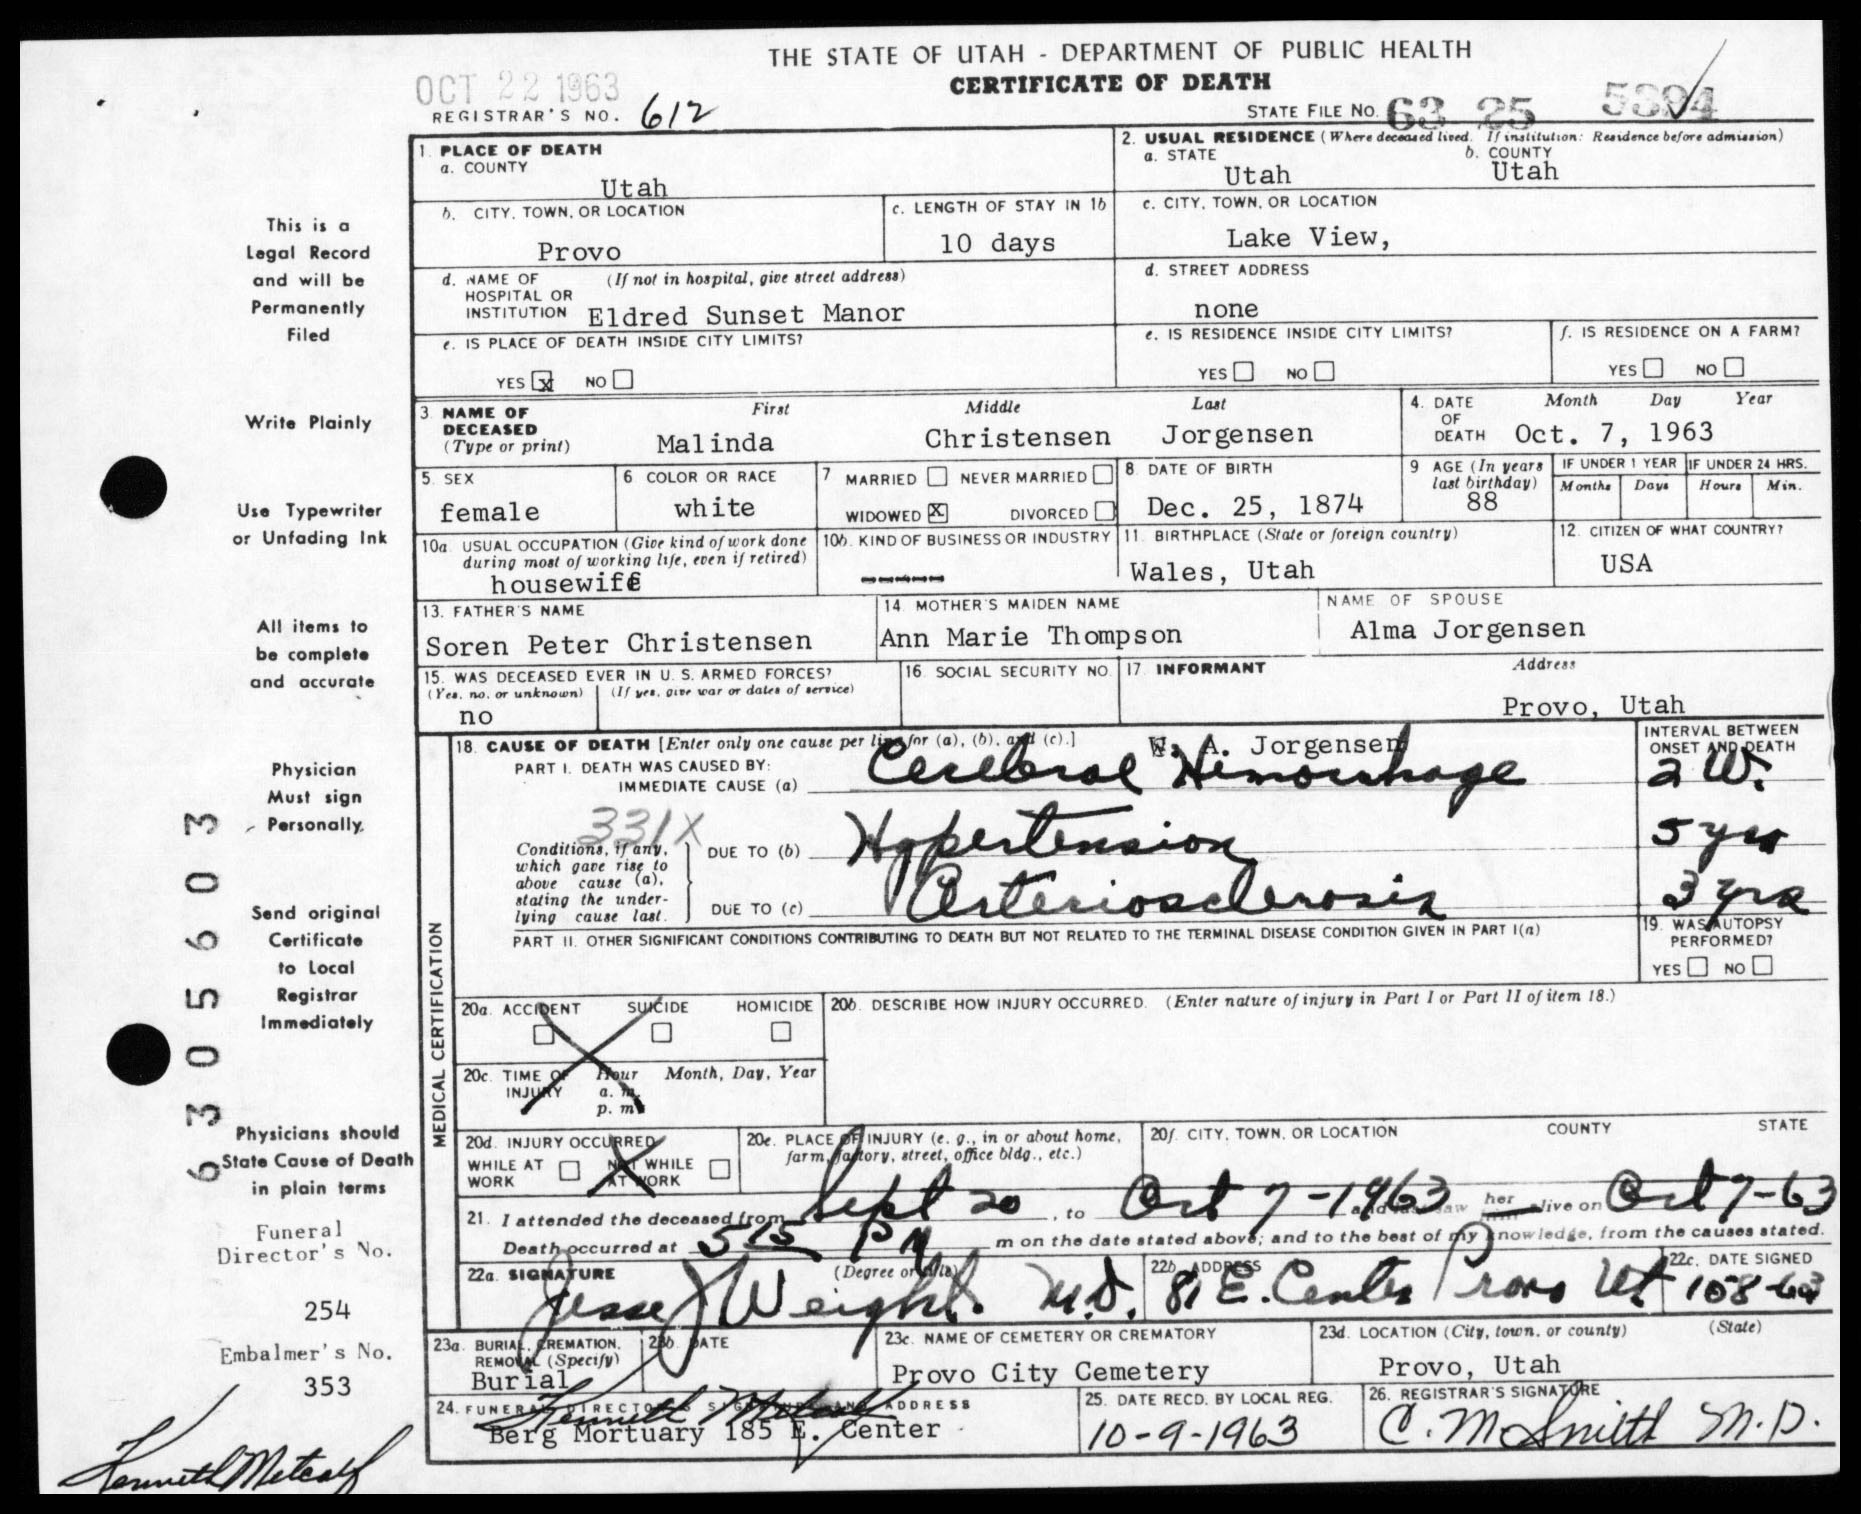 THE STATE OF UTAH - DEPARTMENT OF PUBLIC HEALTH
CERTIFICATE OF DEATH
OCT 22 1963
REGISTRAR'S NO. 612
STATE FILE NO. 63 25 5394
This is a
Legal Record
and will be
Permanently
Filed
Write Plainly
Use Typewriter
or Unfading Ink
All items to
be complete
and accurate
Physician
Must sign
Personally.
Send original
Certificate
to Local
Registrar
Immediately
Physicians should
State Cause of Death
in plain terms
Funeral
Director's No.
254
Embalmer's No.
353
Kenneth Metcalf
6305603
1. PLACE OF DEATH
a. COUNTY
Utah
2. USUAL RESIDENCE (Where deceased lived. If institution: Residence before admission)
a. STATE
Utah
b. COUNTY
Utah
b. CITY, TOWN, OR LOCATION
Provo
c. LENGTH OF STAY IN 1b
10 days
c. CITY, TOWN, OR LOCATION
Lake View,
d. NAME OF HOSPITAL OR INSTITUTION (If not in hospital, give street address)
Eldred Sunset Manor
d. STREET ADDRESS
none
e. IS PLACE OF DEATH INSIDE CITY LIMITS?
YES x NO
e. IS RESIDENCE INSIDE CITY LIMITS?
YES NO
f. IS RESIDENCE ON A FARM?
YES NO
3. NAME OF DECEASED (Type or print)
First Middle Last
Malinda Christensen Jorgensen
4. DATE OF DEATH Month Day Year
Oct. 7, 1963
5. SEX
female
6 COLOR OR RACE
white
7 MARRIED NEVER MARRIED
WIDOWED x DIVORCED
8 DATE OF BIRTH
Dec. 25, 1874
9 AGE (In years last birthday)
88
IF UNDER 1 YEAR
Months Days
IF UNDER 24 HRS.
Hours Min.
10a. USUAL OCCUPATION (Give kind of work done during most of working life, even if retired)
housewife
10b. KIND OF BUSINESS OR INDUSTRY
-----
11. BIRTHPLACE (State or foreign country)
Wales, Utah
12. CITIZEN OF WHAT COUNTRY?
USA
13. FATHER'S NAME
Soren Peter Christensen
14. MOTHER'S MAIDEN NAME
Ann Marie Thompson
NAME OF SPOUSE
Alma Jorgensen
15. WAS DECEASED EVER IN U. S. ARMED FORCES?
(Yes, no, or unknown) (If yes, give war or dates of service)
no
16. SOCIAL SECURITY NO.
17. INFORMANT Address
Provo, Utah
A. Jorgensen
18. CAUSE OF DEATH [Enter only one cause per line for (a), (b), and (c).]
PART I. DEATH WAS CAUSED BY:
IMMEDIATE CAUSE (a) Cerebral Hemorrhage
INTERVAL BETWEEN ONSET AND DEATH
2 W.
331X
Conditions, if any, which gave rise to above cause (a), stating the underlying cause last.
DUE TO (b) Hypertension
5 yrs
DUE TO (c) Arteriosclerosis
3 yrs
PART II. OTHER SIGNIFICANT CONDITIONS CONTRIBUTING TO DEATH BUT NOT RELATED TO THE TERMINAL DISEASE CONDITION GIVEN IN PART I(a)
19. WAS AUTOPSY PERFORMED?
YES NO
MEDICAL CERTIFICATION
20a. ACCIDENT SUICIDE HOMICIDE
20b. DESCRIBE HOW INJURY OCCURRED. (Enter nature of injury in Part I or Part II of item 18.)
20c. TIME OF INJURY Hour Month, Day, Year
a. m.
p. m.
20d. INJURY OCCURRED
WHILE AT WORK NOT WHILE AT WORK
20e. PLACE OF INJURY (e. g., in or about home, farm, factory, street, office bldg., etc.)
20f. CITY, TOWN, OR LOCATION COUNTY STATE
21. I attended the deceased from Sept 20, to Oct 7-1963 and last saw her him alive on Oct 7-63
Death occurred at 5 15 PM m on the date stated above; and to the best of my knowledge, from the causes stated.
22a. SIGNATURE (Degree or title)
Jesse J Weight. M.D.
22b. ADDRESS
81 E. Center Provo Ut.
22c. DATE SIGNED
23a. BURIAL, CREMATION, REMOVAL (Specify)
Burial
23b. DATE
23c. NAME OF CEMETERY OR CREMATORY
Provo City Cemetery
23d. LOCATION (City, town, or county) (State)
Provo, Utah
24. FUNERAL DIRECTOR'S SIGNATURE AND ADDRESS
Kenneth Metcalf
Berg Mortuary 185 E. Center
25. DATE RECD. BY LOCAL REG.
10-9-1963
26. REGISTRAR'S SIGNATURE
C. M Smith M.D.